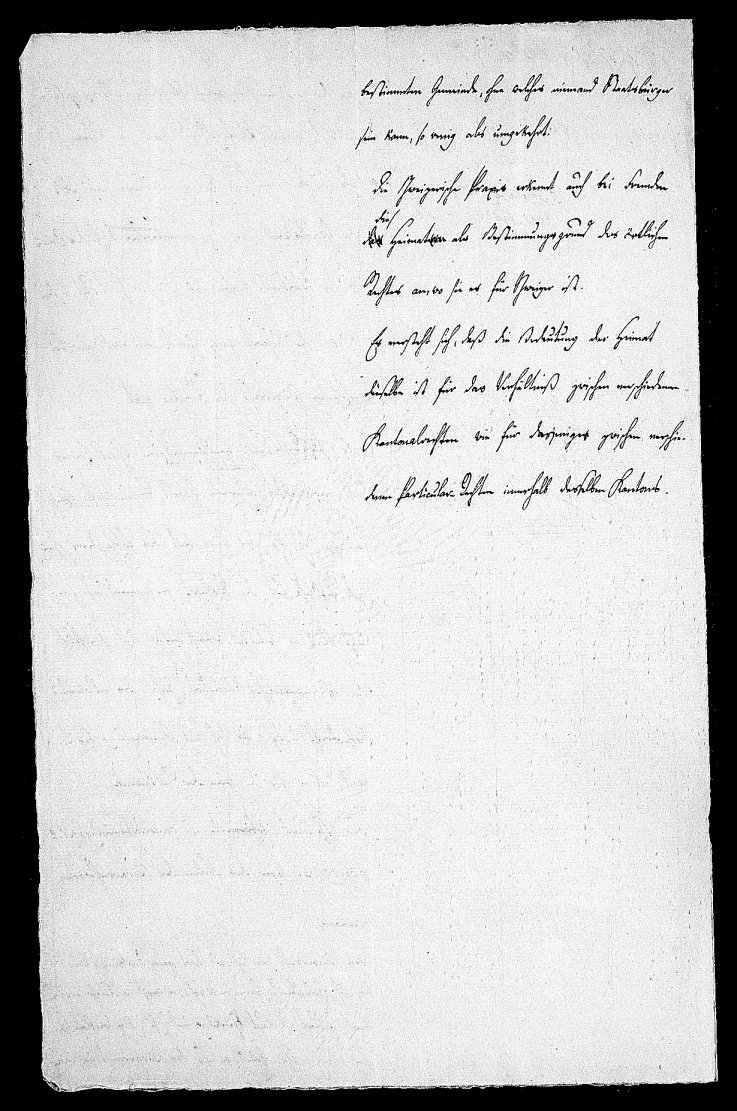 bestimmten Gemeinde, ohne welches niemand Staatsbürger
sein kann, so wenig als umgekehrt.
Die Schweizerische Praxis erkennt auch bei Fremden
die
Heimat als Bestimmungsgrund des örtlichen
Rechtes an, wo sie es für Schweizer ist.
Es versteht sich, daß die Bedeutung der Heimat
dieselbe ist für das Verhältniß zwischen verschiedenen
Kantonalrechten wie für dasjenige zwischen verschie-
denen Particular-Rechten innerhalb desselben Kantons.